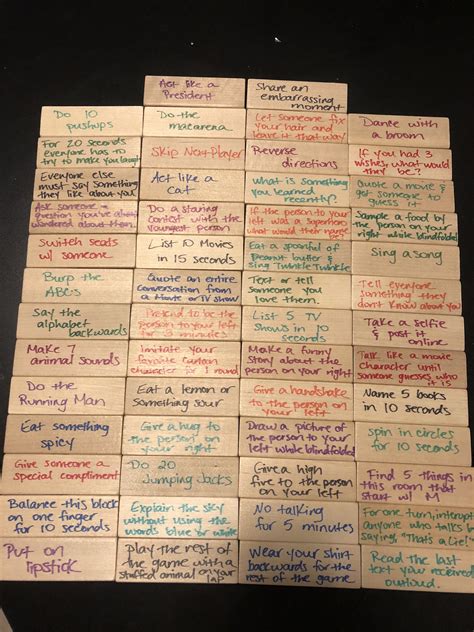 Act like a
President
Share an
embarrassing
moment
Do 10
pushups
Do the
macarena
Let someone fix
your hair and
leave it that way
Dance with
a broom
For 20 seconds
everyone has to
try to make you laugh
Skip Next Player
Reverse
directions
If you had 3
wishes, what would
they be?
Everyone else
must say something
they like about you
Act like a
cat
What is something
you learned
recently?
Quote a movie &
get someone to
guess it
Ask someone a
question you've always
wondered about them.
Do a staring
contest with the
youngest person
If the person to your
left was a superhero
what would their name
Sample a food by
the person on your
right while blindfolded
Switch seats
w/ someone
List 10 Movies
in 15 seconds
Eat a spoonful of
peanut butter &
sing Twinkle Twinkle
Sing a song
Burp the
ABC's
Quote an entire
conversation from
a Movie or TV show
Text or tell
someone you
love them.
Tell everyone
something they
don't know about you
Say the
alphabet
backwards
Pretend to be the
person to your left
for 3 minutes
List 5 TV
Shows in 10
seconds
Take a selfie
& post it
online
Make 7
animal sounds
Imitate your
favorite cartoon
character for 1 round
Make a funny
story about the
person on your right
Talk like a movie
character until
someone guesses who
it is
Do the
Running Man
Eat a lemon or
something sour
Give a handshake
to the person on
your left
Name 5 books
in 10 seconds
Eat something
spicy
Give a hug to
the person on
your right
Draw a picture of
the person to your
left while blindfolded
Spin in circles
for 10 seconds
Give someone a
special compliment
Do 20
Jumping Jacks
Give a high
five to the person
on your left
Find 5 things in
this room that
start w/ M
Balance this block
on one finger
for 10 seconds
Explain the sky
without using the
words blue or white
No talking
for 5 minutes
For one turn, interrupt
anyone who talks by
saying, "That's a Lie!"
Put on
lipstick
Play the rest of
the game with a
stuffed animal on your
lap
Wear your shirt
backwards for the
rest of the game
Read the last
text your received
outloud.